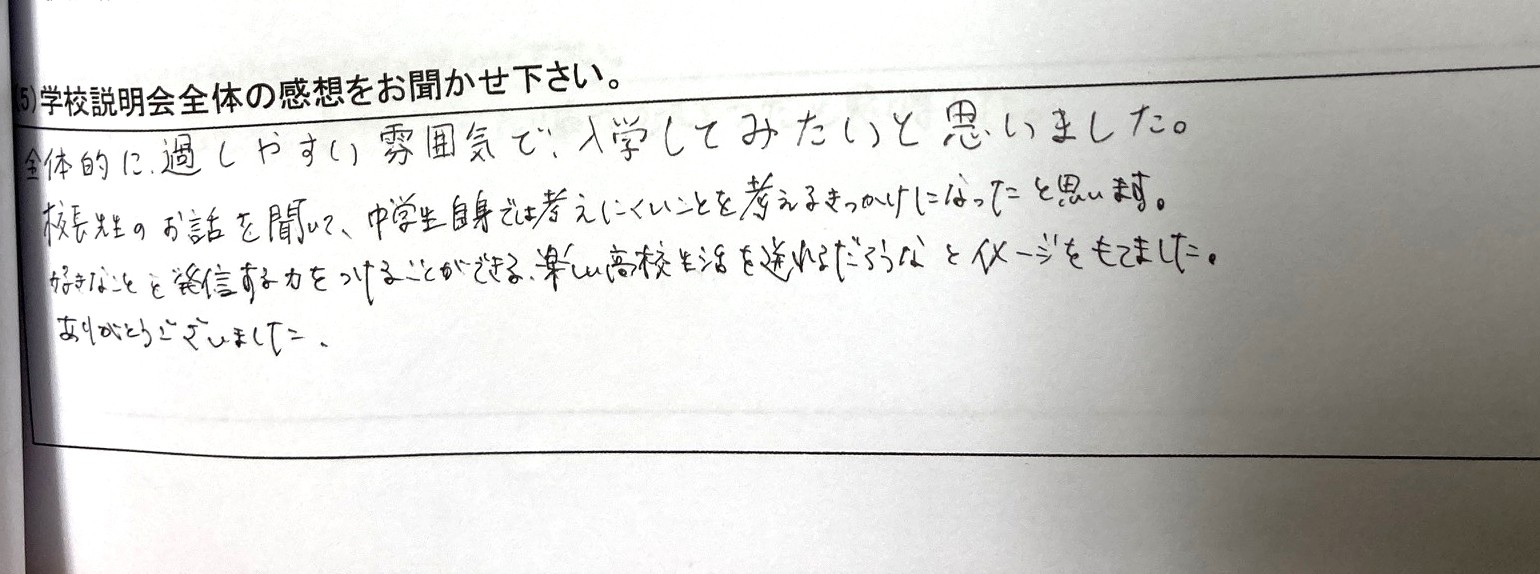 (5)学校説明会全体の感想をお聞かせ下さい。
全体的に、過しやすい雰囲気で、入学してみたいと思いました。
校長先生のお話を聞いて、中学生自身では考えにくいことを考えるきっかけになったと思います。
好きなことを発信する力をつけることができる、楽しい高校生活を送れるだろうなとイメージをもてました。
ありがとうございました。